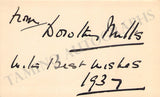 from Dorothy Mills
With Best Wishes
1937